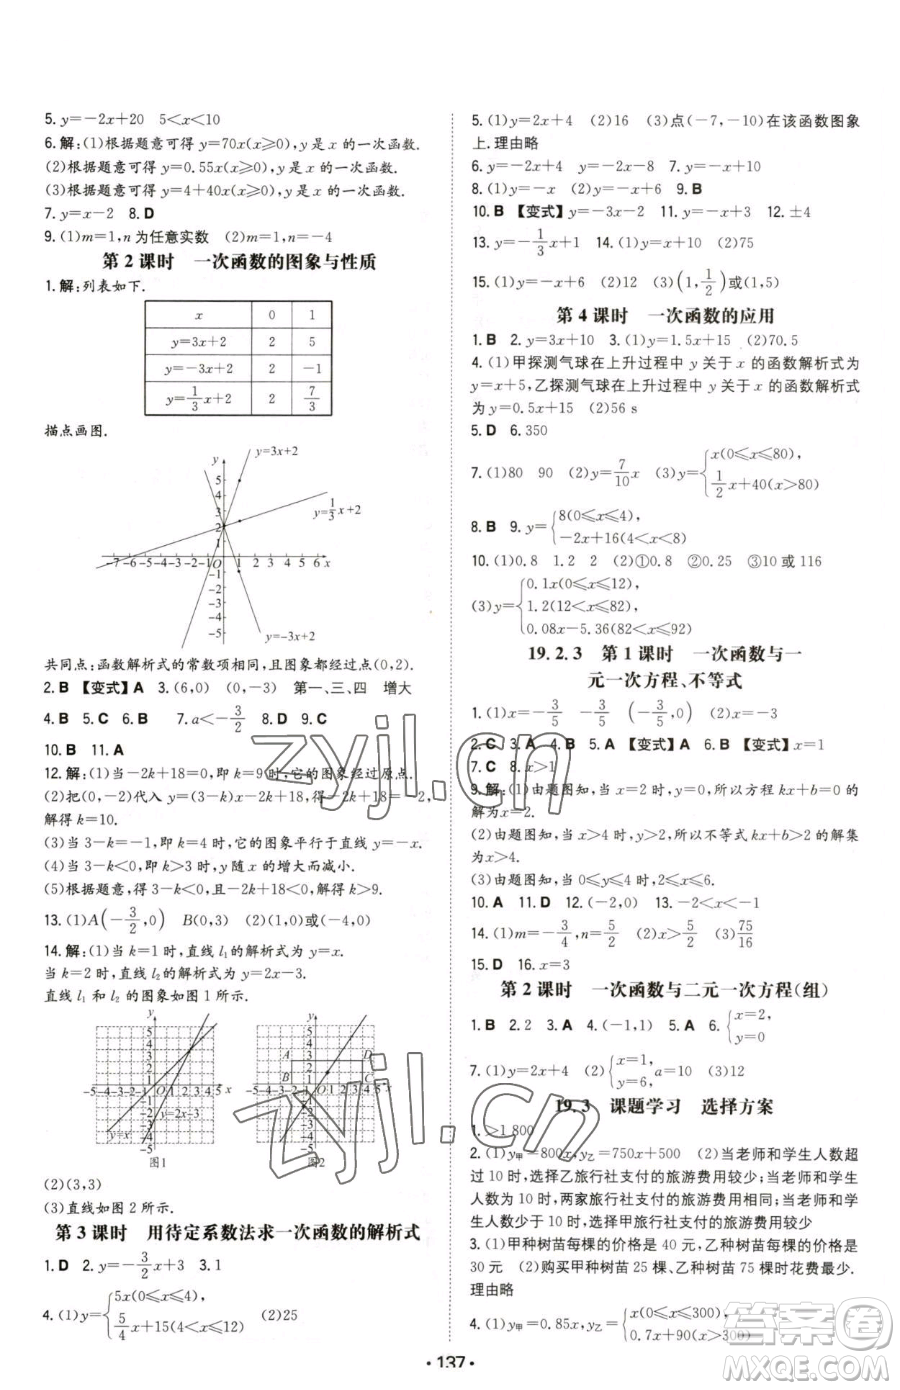 5. y=-x+20  5<x<10
6. 解:(1)根据题意可得 y=70x(x⩾0), y 是 x 的一次函数.
(2)根据题意可得 y=0.55x(x⩾0), y 是 x 的一次函数.
(3)根据题意可得 y=4+40x(x⩾0), y 是 x 的一次函数.
7. y=x-2  8. D
9. (1)m=1, n 为任意实数  (2)m=1, n=-4
第 2 课时  一次函数的图象与性质
1. 解:列表如下.
x  0  1
y=3x+2  2  5
y=-3x+2  2  -1
y=1/3x+2  2  7/3
描点画图.
y=3x+2
y=1/3x+2
y=-3x+2
共同点:函数解析式的常数项相同,且图象都经过点(0,2).
2. B 【变式】A  3. (6,0)  (0,-3)  第一、三、四  增大
4. B  5. C  6. B  7. a<-3/2  8. D  9. C
10. B  11. A
12. 解:(1)当-2k+18=0,即 k=9 时,它的图象经过原点.
(2)把(0,-2)代入 y=(3-k)x-2k+18,得-2k+18=-2,
解得 k=10.
(3)当 3-k=-1,即 k=4 时,它的图象平行于直线 y=-x.
(4)当 3-k<0,即 k>3 时,y 随 x 的增大而减小.
(5)根据题意,得 3-k<0 且-2k+18<0,解得 k>9.
13. (1)A(-3/2,0)  B(0,3)  (2)(1,0)或(-4,0)
14. 解:(1)当 k=1 时,直线 l₁ 的解析式为 y=x.
当 k=2 时,直线 l₂ 的解析式为 y=2x-3.
直线 l₁ 和 l₂ 的图象如图 1 所示.
y=x  y=2x-3
A  D
B  C
图1  图2
(2)(3,3)
(3)直线如图 2 所示.
第 3 课时  用待定系数法求一次函数的解析式
1. D  2. y=-3/2x+3  3. 1
4. (1)y={5x(0⩽x⩽4), 5/4x+15(4<x⩽12)  (2)25
5. (1)y=2x+4  (2)16  (3)点(-7,-10)在该函数图象
上.理由略
6. y=-2x+4  y=-2x-8  7. y=2x+4
8. (1)y=-x  (2)y=-x+6  9. B
10. B 【变式】y=-3x-2  11. y=2x-1  12. ±4
13. y=-1/3x+1  14. (1)y=3x  (2)75
15. (1)y=-2x+6  (2)3  (3)(1,1/2)或(1,5)
第 4 课时  一次函数的应用
1. B  2. y=3x+10  3. (1)y=1.5x+4.5  (2)70.5
4. (1)甲探测气球在上升过程中 y 关于 x 的函数解析式为
y=x+5,乙探测气球在上升过程中 y 关于 x 的函数解析式
为 y=0.5x+15  (2)56 s
5. D  6. 350
7. (1)80  90  (2)y=7/10x  (3)y={x(0⩽x⩽80), 1/2x+40(x>80)
8. B  9. y={8(0⩽x⩽4), -2x+16(4<x<8)
10. (1)0.8  1.2  2  (2)①0.8  ②0.25  ③10 或 116
(3)y={0.1x(0⩽x⩽12), 1.2(12<x⩽82), 0.08x-5.36(82<x⩽92)
19.2.3  第 1 课时  一次函数与一
元一次方程、不等式
1. (1)x=-3/5  -3/5  (-3/5,0)  (2)x=-3
2. C  3. A  4. B  5. A 【变式】A  6. B 【变式】x=1
7. C  8. x>1
9. 解:(1)由题图知,当 x=2 时,y=0,所以方程 kx+b=0 的
解为 x=2.
(2)由题图知,当 x>4 时,y>2,所以不等式 kx+b>2 的解集
为 x>4.
(3)由题图知,0⩽x⩽6.
10. A  11. D  12. (-2,0)  13. -2<x<-1
14. (1)m=-3/4, n=5/2  (2)x>5/2  (3)75/16
15. D  16. x=3
第 2 课时  一次函数与二元一次方程(组)
1. B  2. 2  3. A  4. (-1,1)  5. A  6. {x=2, y=0
7. (1)y=2x+4  (2){x=1, y=6, a=10  (3)x<1
19.3  课题学习  选择方案
1. >1 800
2. (1)y甲=800x  y乙=750x+500  (2)当老师和学生人数
超过 10 时,选择乙旅行社支付的旅游费用较少;当老师和学
生人数为 10 时,两家旅行社支付的旅游费用相同;当老师和学
生人数少于 10 时,选择甲旅行社支付的旅游费用较少
3. (1)甲种树苗每棵的价格是 40 元,乙种树苗每棵的价格是
10 元  (2)购买甲种树苗 25 棵、乙种树苗 75 棵时花费最少.
理由略
4. (1)y甲=0.85x, y乙={x(0⩽x⩽300), 0.7x+90(x>300)
· 137 ·
zyjl.cn
zyjl.cn
答案圈
MXQE.COM